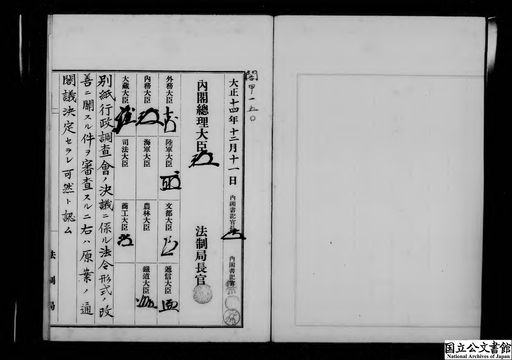 閣甲一五〇
大正十四年十二月十一日
内閣書記官長
内閣書記官
内閣總理大臣
法制局長官
外務大臣
陸軍大臣
文部大臣
遞信大臣
内務大臣
海軍大臣
農林大臣
鐵道大臣
大藏大臣
司法大臣
商工大臣
別紙行政調査會ノ決議ニ係ル法令形式ノ改
善ニ關スル件ヲ審査スルニ右ハ原案ノ通
閣議決定セラレ可然ト認ム
法制局
国立公文書館
National Archives of Japan